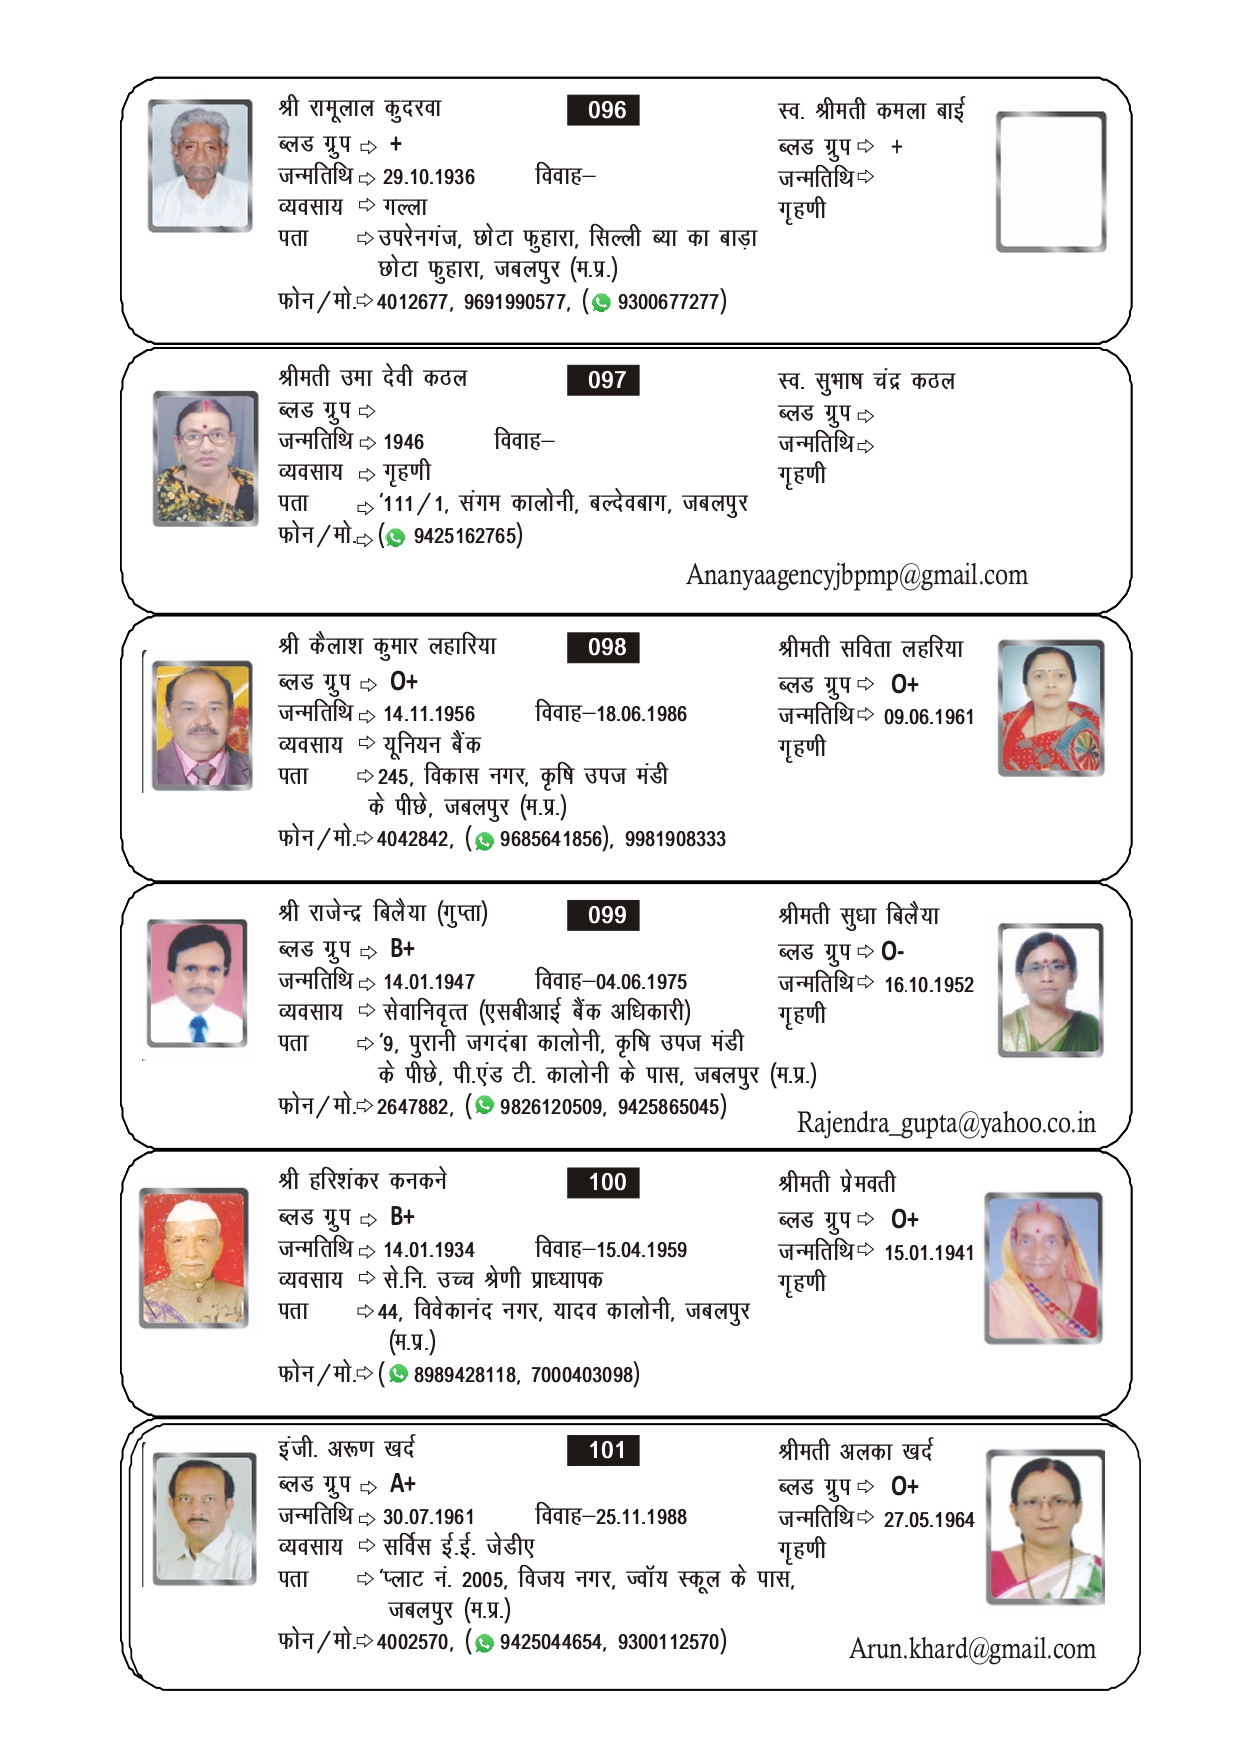 श्री रामूलाल कुदरवा 096 स्व. श्रीमती कमला बाई
ब्लड ग्रुप ⇨ + ब्लड ग्रुप ⇨ +
जन्मतिथि ⇨ 29.10.1936 विवाह– जन्मतिथि ⇨
व्यवसाय ⇨ गल्ला गृहणी
पता ⇨ उपरेनगंज, छोटा फुहारा, सिल्ली ब्या का बाड़ा
छोटा फुहारा, जबलपुर (म.प्र.)
फोन/मो.⇨ 4012677, 9691990577, ( 9300677277)
श्रीमती उमा देवी कठल 097 स्व. सुभाष चंद्र कठल
ब्लड ग्रुप ⇨ ब्लड ग्रुप ⇨
जन्मतिथि ⇨ 1946 विवाह– जन्मतिथि ⇨
व्यवसाय ⇨ गृहणी गृहणी
पता ⇨ '111/1, संगम कालोनी, बल्देवबाग, जबलपुर
फोन/मो.⇨ ( 9425162765)
Ananyaagencyjbpmp@gmail.com
श्री कैलाश कुमार लहारिया 098 श्रीमती सविता लहरिया
ब्लड ग्रुप ⇨ O+ ब्लड ग्रुप ⇨ O+
जन्मतिथि ⇨ 14.11.1956 विवाह–18.06.1986 जन्मतिथि ⇨ 09.06.1961
व्यवसाय ⇨ यूनियन बैंक गृहणी
पता ⇨ 245, विकास नगर, कृषि उपज मंडी
के पीछे, जबलपुर (म.प्र.)
फोन/मो.⇨ 4042842, ( 9685641856), 9981908333
श्री राजेन्द्र बिलैया (गुप्ता) 099 श्रीमती सुधा बिलैया
ब्लड ग्रुप ⇨ B+ ब्लड ग्रुप ⇨ O-
जन्मतिथि ⇨ 14.01.1947 विवाह–04.06.1975 जन्मतिथि ⇨ 16.10.1952
व्यवसाय ⇨ सेवानिवृत्त (एसबीआई बैंक अधिकारी) गृहणी
पता ⇨ '9, पुरानी जगदंबा कालोनी, कृषि उपज मंडी
के पीछे, पी.एंड टी. कालोनी के पास, जबलपुर (म.प्र.)
फोन/मो.⇨ 2647882, ( 9826120509, 9425865045)
Rajendra_gupta@yahoo.co.in
श्री हरिशंकर कनकने 100 श्रीमती प्रेमवती
ब्लड ग्रुप ⇨ B+ ब्लड ग्रुप ⇨ O+
जन्मतिथि ⇨ 14.01.1934 विवाह–15.04.1959 जन्मतिथि ⇨ 15.01.1941
व्यवसाय ⇨ से.नि. उच्च श्रेणी प्राध्यापक गृहणी
पता ⇨ 44, विवेकानंद नगर, यादव कालोनी, जबलपुर
(म.प्र.)
फोन/मो.⇨ ( 8989428118, 7000403098)
इंजी. अरूण खर्द 101 श्रीमती अलका खर्द
ब्लड ग्रुप ⇨ A+ ब्लड ग्रुप ⇨ O+
जन्मतिथि ⇨ 30.07.1961 विवाह–25.11.1988 जन्मतिथि ⇨ 27.05.1964
व्यवसाय ⇨ सर्विस ई.ई. जेडीए गृहणी
पता ⇨ 'प्लाट नं. 2005, विजय नगर, ज्वॉय स्कूल के पास,
जबलपुर (म.प्र.)
फोन/मो.⇨ 4002570, ( 9425044654, 9300112570)
Arun.khard@gmail.com